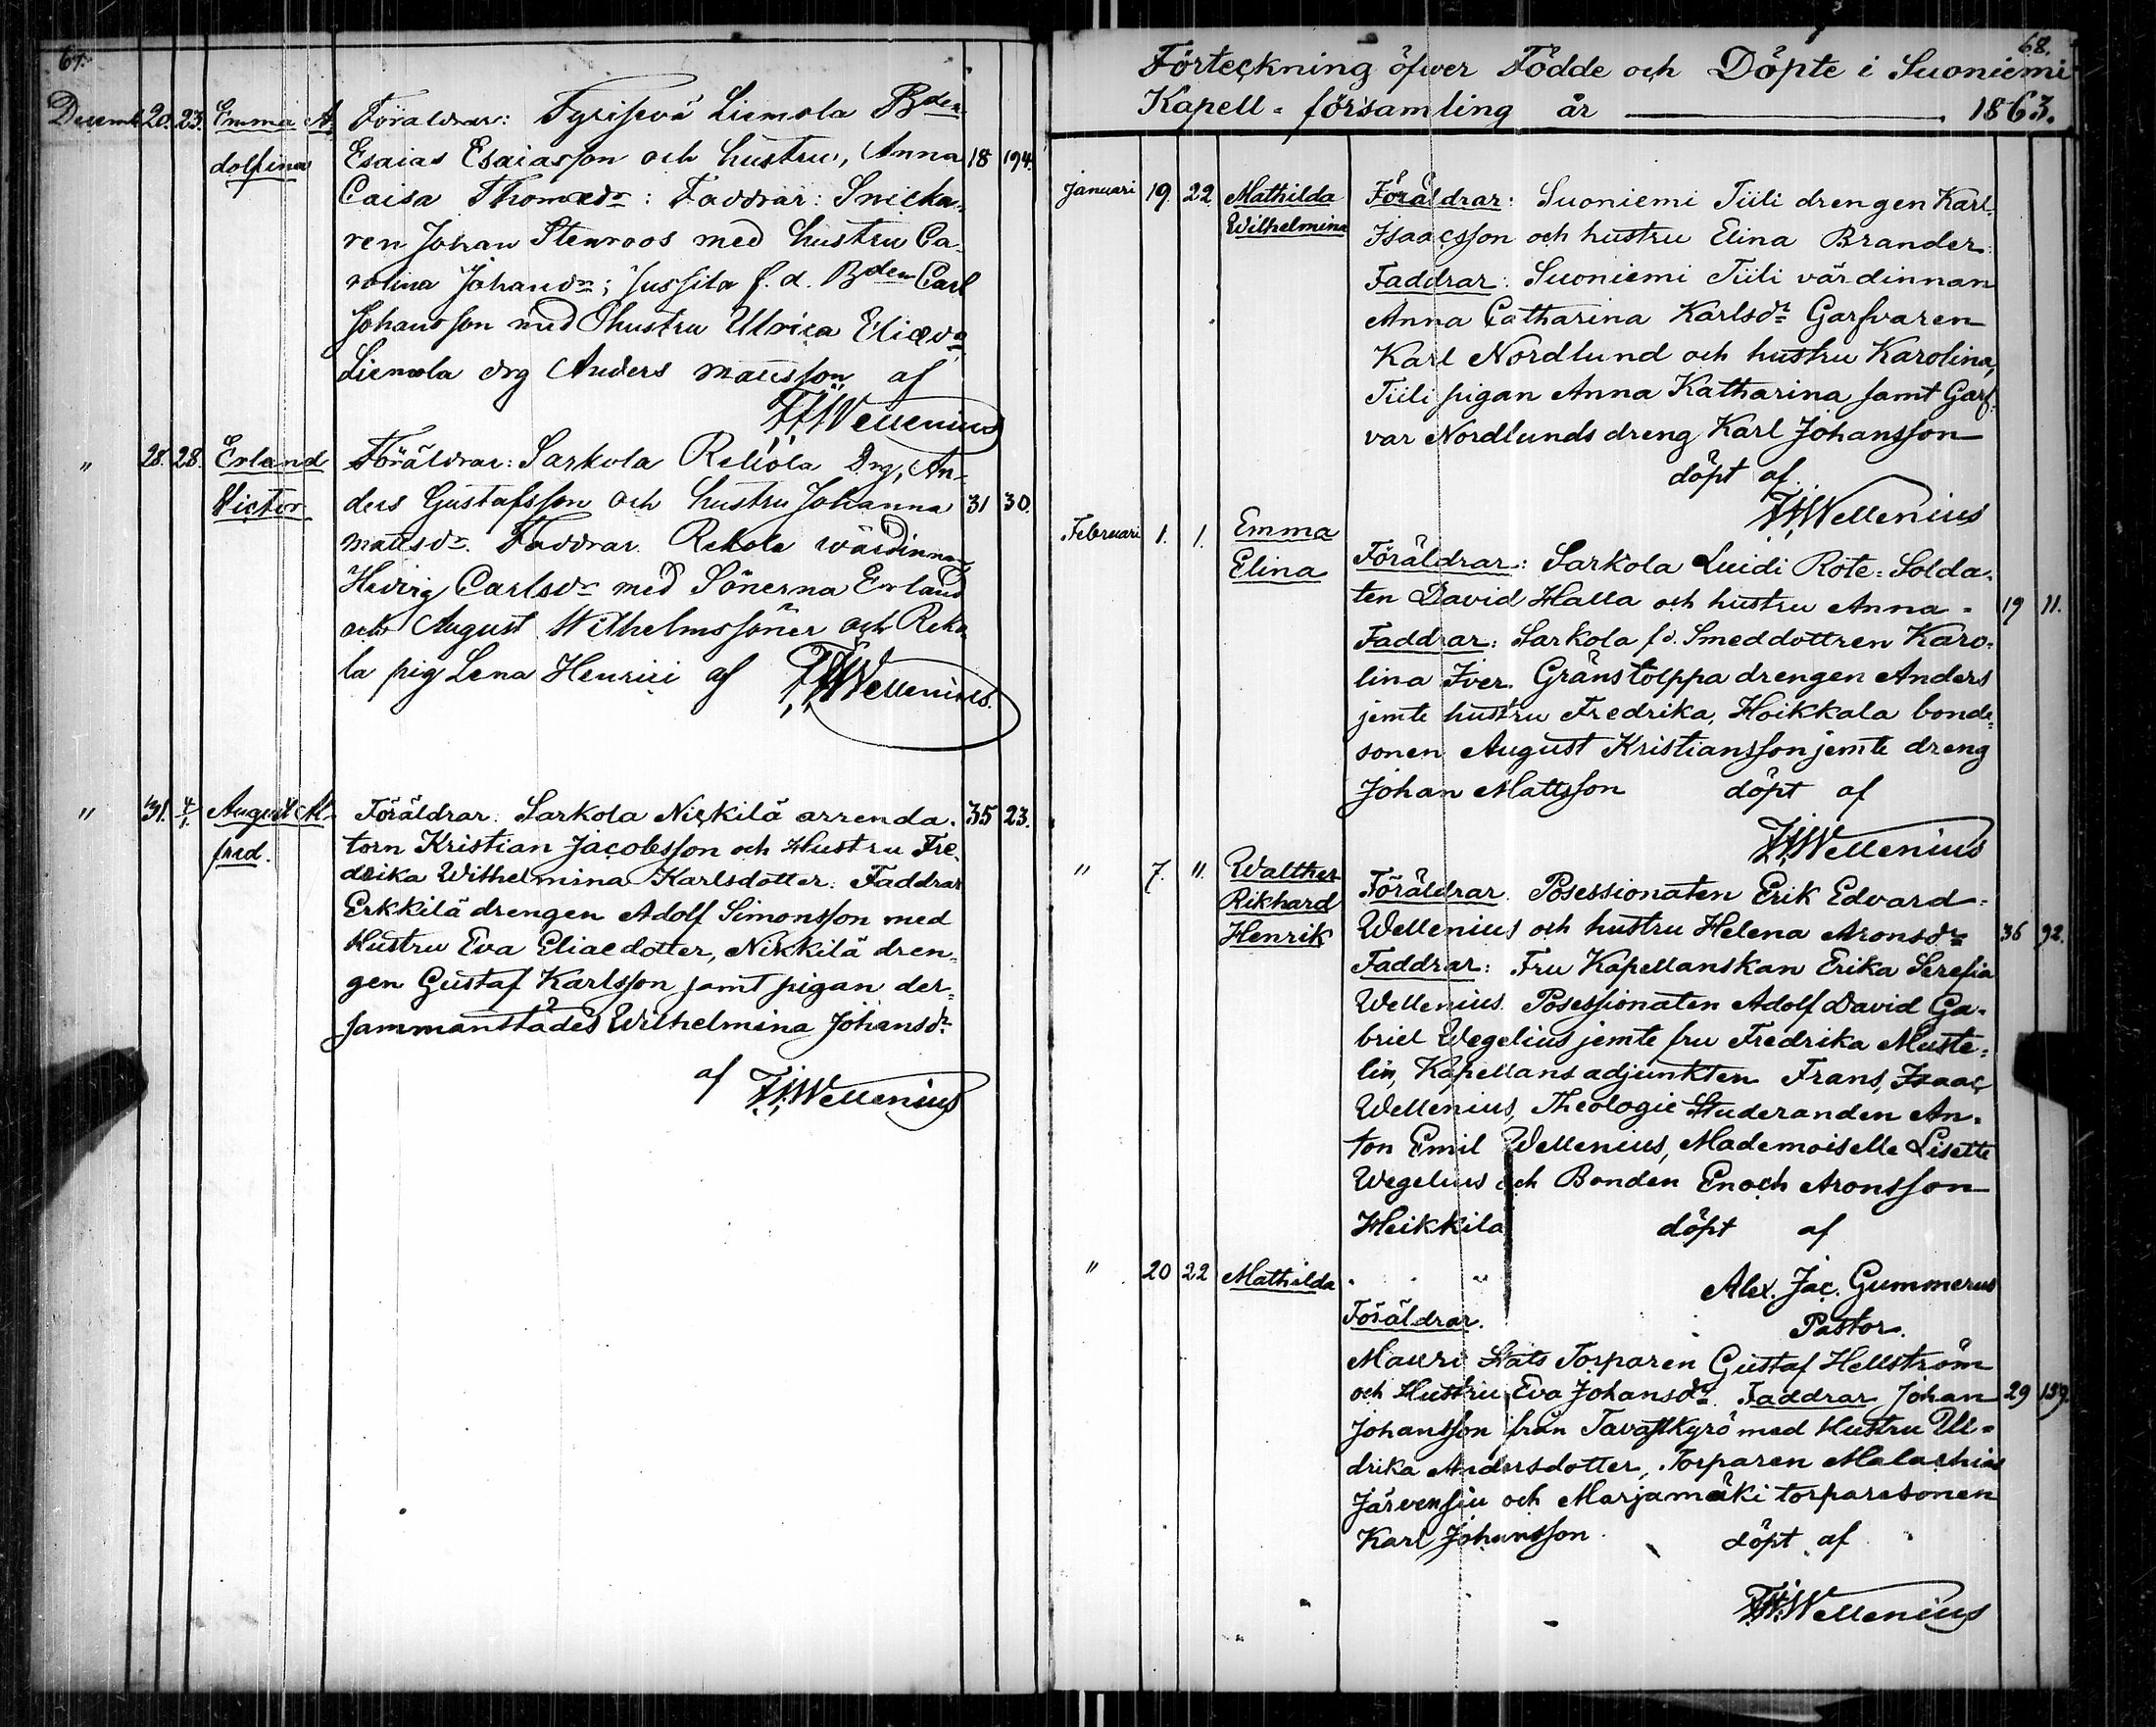 67.
Decemb 20. 23. Emma A. Föräldrar: Tyrisevä Liemola Bden
dolfina Esaias Esaiasson och hustru, Anna 18 194.
Caisa Thomædr: Faddrar: Snicka-
ren Johan Stenroos med hustru Ca-
rolina Johansdr; Jussila f. d. Bden Carl
Johansson med hustru Ulrica Eliædr
Liemola drg Anders Mattsson af
F I Wellenius
" 28. 28. Erland Föräldrar: Sarkola Rekola Drg, An-
Victor ders Gustafsson och hustru Johanna 31 30.
Mattsdr. Faddrar. Rekola wärdinnan
Hedvig Carlsdr med Sönerna Erland
och August Wilhelmssöner och Reko
la pig Lena Henrici af F I Wellenius.
" 31. 4/1. August Al- Föräldrar: Sarkola Nickilä arrenda- 35 23.
fred. torn Kristian Jacobsson och Hustru Fre-
drika Wilhelmina Karlsdotter: Faddrar
Erkkilä drengen Adolf Simonsson med
Hustru Eva Eliaedotter, Nikkilä dren-
gen Gustaf Karlsson samt pigan der-
sammanstädes Wilhelmina Johansdr
af F I Wellenius
68.
Förteckning öfwer Födde och Döpte i Suoniemi
Kapell-församling år 1863.
Januari 19. 22. Mathilda Föräldrar: Suoniemi Tiili drengen Karl
Wilhelmina Isaacsson och hustru Elina Brander:
Faddrar: Suoniemi Tiili värdinnan
Anna Catharina Karlsdr Garfvaren
Karl Nordlund och hustru Karolina,
Tiili pigan Anna Katharina samt Garf-
var Nordlunds dreng Karl Johansson
döpt af
F I Wellenius
Februari 1. 1. Emma
Elina Föräldrar: Sarkola Luidi Rote-Solda-
ten David Halla och hustru Anna - 19 11.
Faddrar: Sarkola f.d. Smeddottren Karo-
lina Iver. Gränstolppa drengen Anders
jemte hustru Fredrika, Hoikkala bonde-
sonen August Kristiansson jemte dreng
Johan Mattsson döpt af
F I Wellenius
" 7. 11. Walther
Rikhard Föräldrar. Posessionaten Erik Edvard-
Henrik Wellenius och hustru Helena Aronsdr 36 92.
Faddrar: Fru Kapellanskan Erika Serefia
Wellenius. Posessionaten Adolf David Ga-
briel Wegelius jemte fru Fredrika Muste-
lin, Kapellans adjunkten Frans, Isaac
Wellenius, Theologie Studeranden An-
ton Emil Wellenius, Mademoiselle Lisette
Wegelius och Bonden Enoch Aronsson
Heikkila döpt af
" 20 22 Mathilda Alex. Jac. Gummerus
Föräldrar. Pastor.
Mauri Stats Torparen Gustaf Hellström
och Hustru Eva Johansdr. Faddrar Johan 29 159.
Johansson från Tavastkyrö med Hustru Ul-
drika Andersdotter, Torparen Malachias
Järvensiu och Marjamäki torparesonen
Karl Johansson döpt af
F I Wellenius